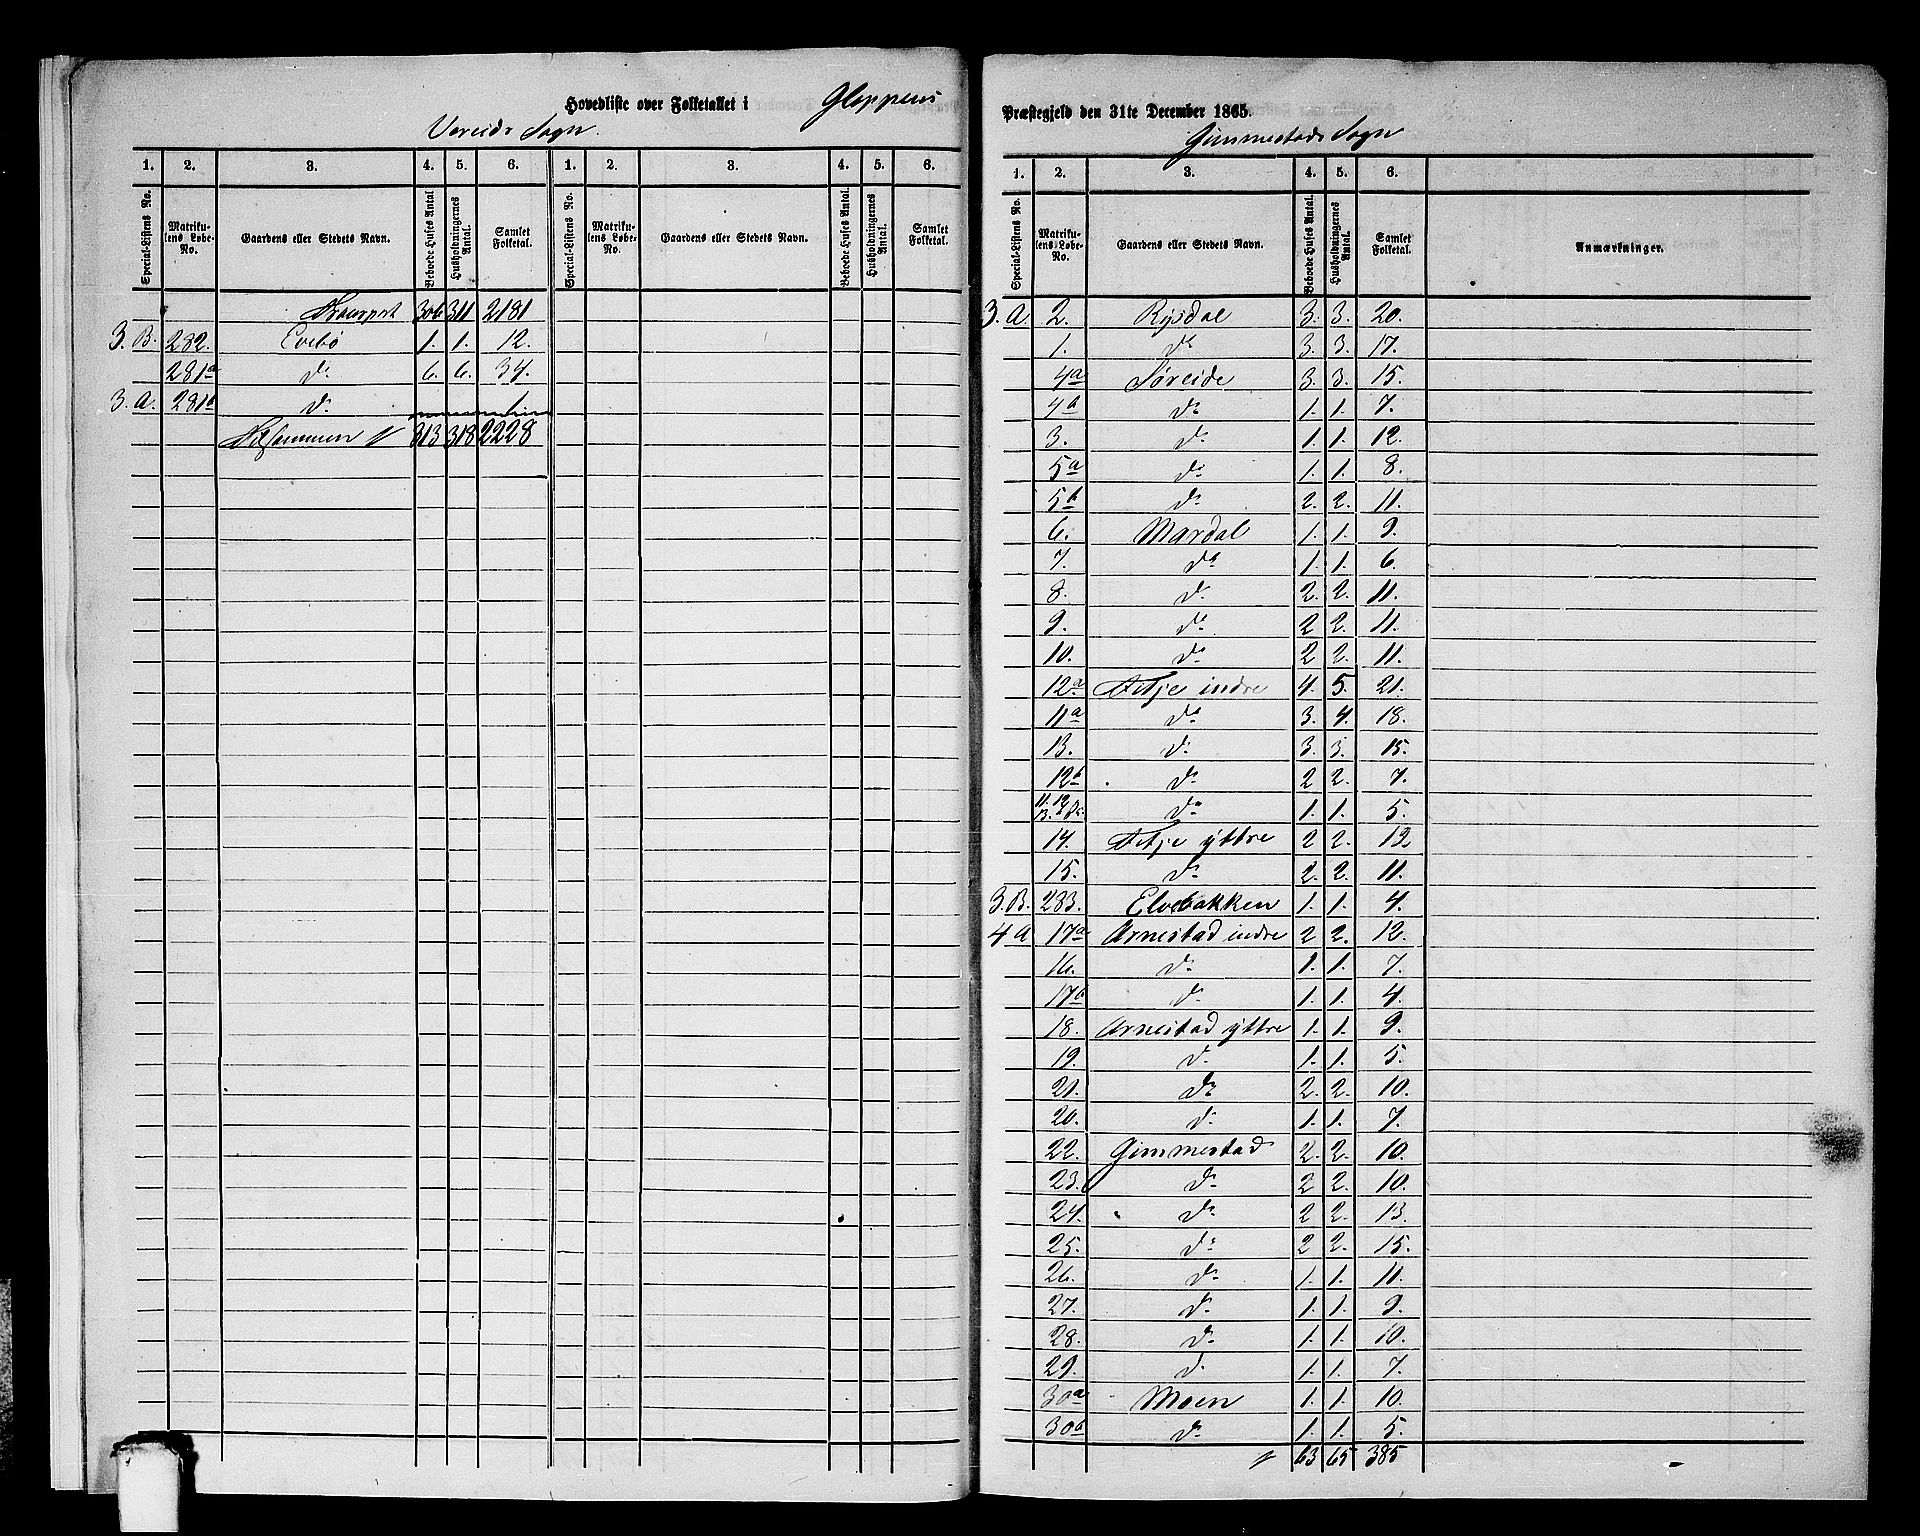 Hovedliste over Folketallet i Gloppens
Vereids Sogn.
1. 2. 3. 4. 5. 6. 1. 2. 3. 4. 5. 6.
Special-Listens No. Matrikulens Løbe-No. Gaardens eller Stedets Navn. Beboede Huses Antal Husholdningernes Antal. Samlet Folketal. Special-Listens No. Matrikulens Løbe-No. Gaardens eller Stedets Navn. Beboede Huses Antal. Husholdningernes Antal. Samlet Folketal.
Transport 306 311 2181
3. B. 282. Evebø 1. 1. 12.
281a do 6. 6. 34.
3. A. 281b do 1
Tilsammen 313 318 2228
Præstegjeld den 31te December 1865.
Gimmestads Sogn
1. 2. 3. 4. 5. 6.
Special-Listens No. Matrikulens Løbe-No. Gaardens eller Stedets Navn. Beboede Huses Antal. Husholdningernes Antal. Samlet Folketal. Anmærkninger.
3. A. 2. Rysdal 3. 3. 20.
1. do 3. 3. 17.
4a Søreide 3. 3. 15.
4b do 1. 1. 7.
3. do 1. 1. 12.
5a do 1. 1. 8.
5b do 2. 2. 11.
6. Mardal 1. 1. 9.
7. do 1. 1. 6.
8. do 2. 2. 11.
9. do 2 2. 11.
10. do 2 2. 11.
12a Fitje indre 4. 5. 21.
11a do 3. 4. 18.
13. do 3. 3. 15.
12b do 2 2. 7.
11. 12 13. do 1. 1. 5.
14. Fitje yttre 2 2. 12
15. do 2. 2. 11.
3. B. 283. Elvebakken 1. 1. 4.
4 A 17a Arnestad indre 2 2. 12.
16. do 1. 1. 7.
17b do 1. 1. 4.
18. Arnestad yttre 1. 1. 9.
19. do 1. 1. 5.
21. do 2. 2. 10.
20. do 1. 1. 7.
22. Gimmestad 2. 2. 10.
23. do 2 2. 10.
24. do 2 2. 13.
25. do 2 2. 15.
26. do 1. 1. 11.
27. do 1. 1. 9.
28. do 1. 1. 10.
29. do 1. 1. 7.
30a Moen 1. 1. 10.
30b do 1. 1. 5.
63 65 385